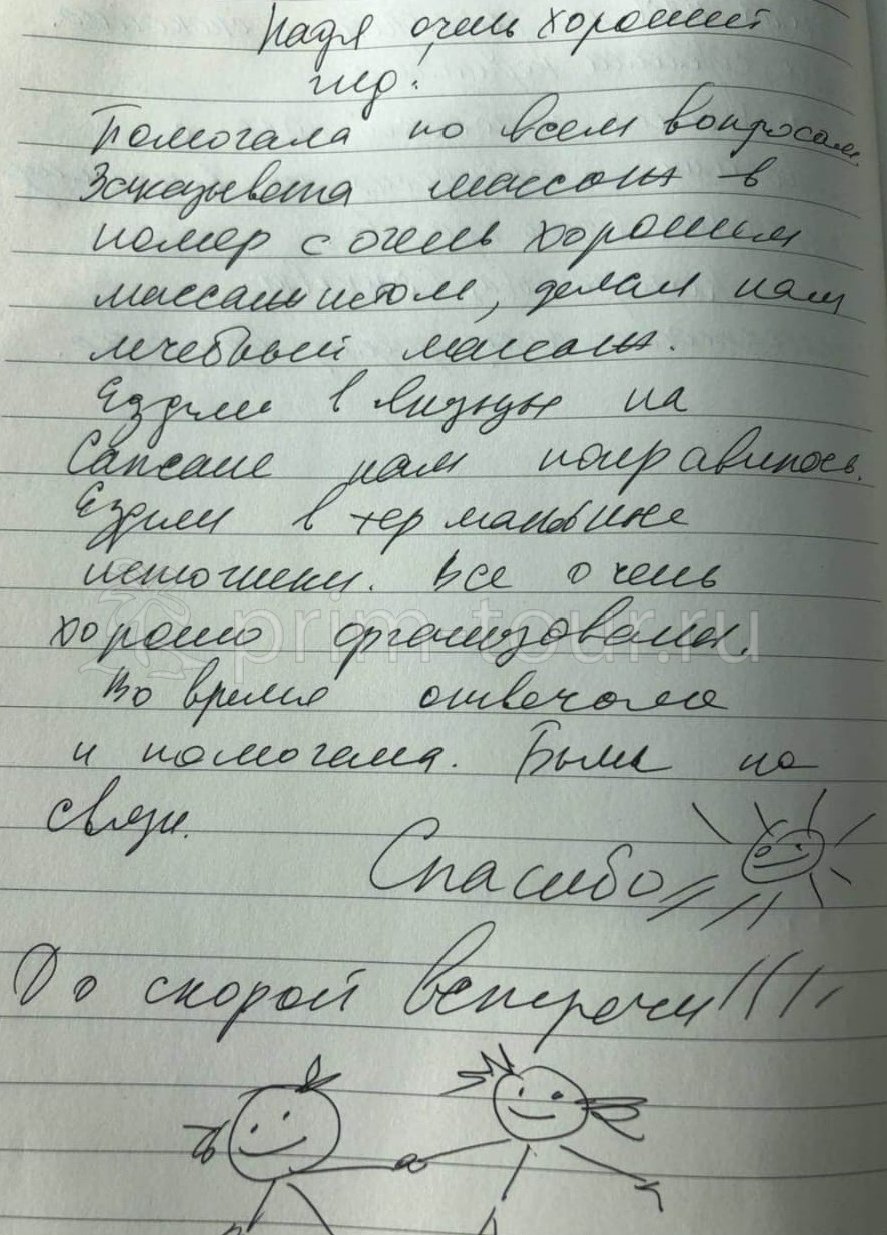 Надя очень хороший
гид!
Помогала по всем вопросам.
Заказывала массаж в
номер с очень хорошим
массажистом, делал нам
лечебный массаж.
Ездили в на
Сапсане нам понравилось.
Ездили в термальные
источники. Все очень
хорошо организовали.
Во время отвечала
и помогала. Была на
связи.
Спасибо!!
До скорой встречи!!!!
prim-tour.ru